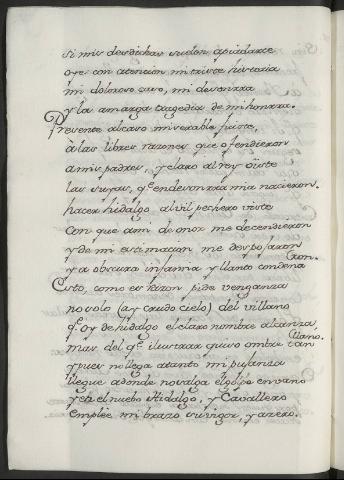 si mis desdichas suelen apiadarte
oye con atencion mi triste historia
mi doloroso caso, mi desonrra
y la amarga tragedia de mi honrra.
Presente al caso miserable fuiste,
à las libres razones que ofendieron
a mis padres, y claro al rey oiste
las suyas, q.e en desonrra mia nacieron.
hacer hidalgo al vil pechero viste
con que ami de onor me decendieron
y de mi estimacion me desposaron
y a obscura infamia y llanto condena
ron.
Esto, como es razon pide venganza
no solo (ay crudo cielo) del villano
q.e oy de hidalgo el claro nombre alcanza,
mas del q.e ilustrar quiso ombre tan
llano.
y pues no llega atanto mi pujanza
llegue adonde no valga el golpe en vano
y en el nuebo Hidalgo, y Cavallero
emplée mi brazo su vigor, y azero.